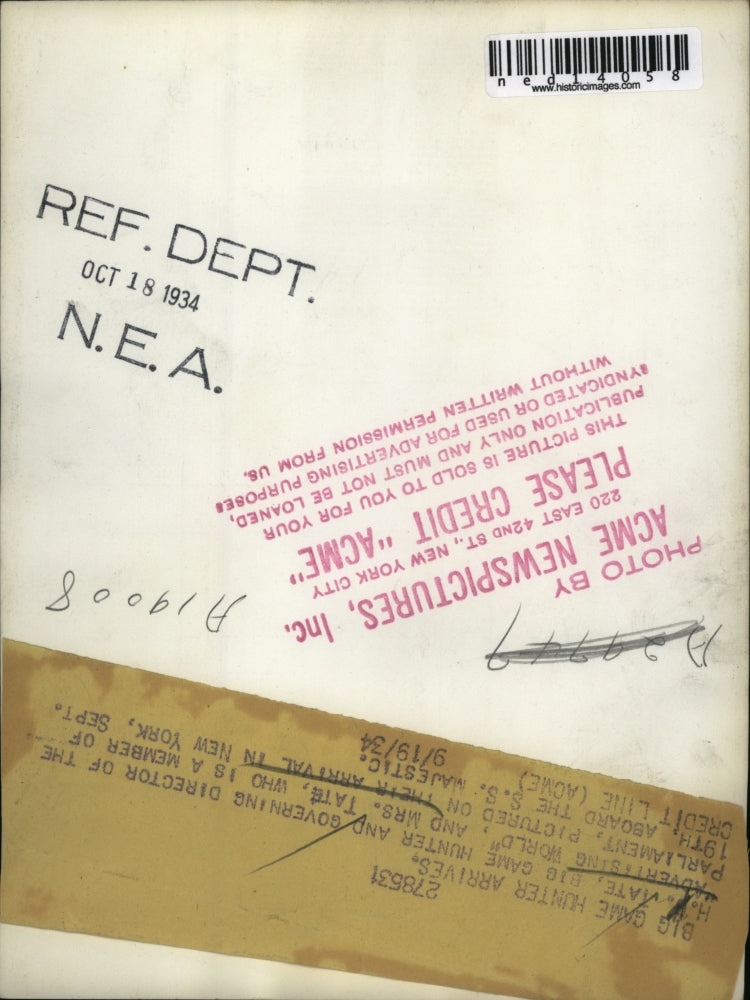 ned14058
www.historicimages.com
REF. DEPT.
OCT 18 1934
N.E.A.
PHOTO BY
ACME NEWSPICTURES, Inc.
220 EAST 42ND ST., NEW YORK CITY
PLEASE CREDIT "ACME"
THIS PICTURE IS SOLD TO YOU FOR YOUR
PUBLICATION ONLY AND MUST NOT BE LOANED,
SYNDICATED OR USED FOR ADVERTISING PURPOSES
WITHOUT WRITTEN PERMISSION FROM US.
A19008
278531
BIG GAME HUNTER ARRIVES.
TATE, BIG GAME HUNTER AND GOVERNING DIRECTOR OF THE
"ADVERTISING WORLD", AND MRS. TATE, WHO IS A MEMBER OF
PARLIAMENT, PICTURED ON THEIR ARRIVAL IN NEW YORK, SEPT.
19TH, ABOARD THE S.S. MAJESTIC.
CREDIT LINE (ACME) 9/19/34